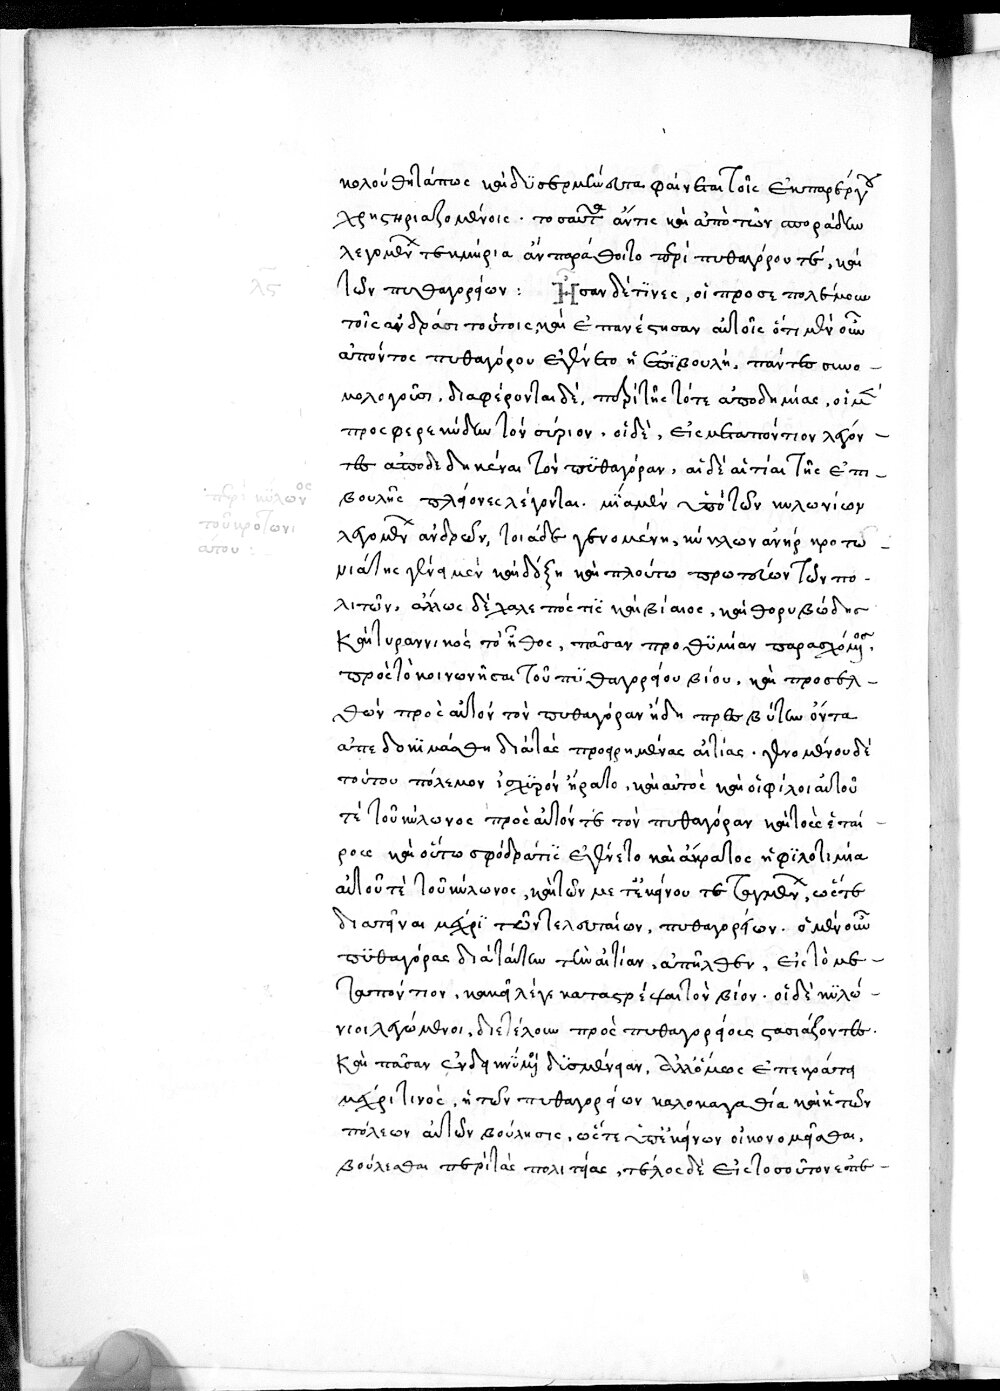 κολούθητάπως καὶ δϋσερμήνευτα φαίνεται τοῖς ἐκπαρέργου
χρηστηριαζομένοις· τοσαῦτα ἄντις καὶ ἀπὸ τῶν σποράδην
λεγομένων τεκμήρια ἂν παράθοιτο περὶ πυθαγόρου τὲ, καὶ
λς
τῶν πυθαγορείων: Ἦσαν δέ τϊνες, οἱ προσεπολέμουν
τοῖς ἀνδράσι τούτοις, καὶ ἐπανέστησαν αὐτοῖς ὅτι μὲν οὖν
ἀπόντος πυθαγόρου ἐγένετο ἡ ἐπϊβουλὴ, πάντες συνο-
μολογοῦσι, διαφέρονται δὲ, περὶ τῆς τότε ἀποδημίας, οἱ μὲν
προς φερεκύδην τὸν σύριον, οἱ δὲ, εἰς μεταπόντιον λέγον-
τες ἀποδεδηκέναι τὸν πϋθαγόραν, αἱ δὲ αἰτίαι τῆς ἐπι-
περὶ κύλωνος
τοῦ κροτωνι
άτου:
βουλῆς πλείονες λέγονται. μΐα μὲν ὑπὸ τῶν κυλωνίων
λεγομένων ἀνδρῶν, τοιάδε γενομένη, κύκλων ἀνὴρ κροτω-
νιάτης γένει μὲν καὶ δόξη καὶ πλούτω πρωτεύων τῶν πο-
λιτῶν, ἄλλως δὲ χαλεπός τϊς καὶ βίαιος, καὶ θορυβώδης
καὶ τυραννικὸς τὸ ἦθος, πᾶσαν προθϋμίαν παρασχόμενος,
πρὸς τὸ κοινωνῆσαι τοῦ πϋθαγορείου βίου, καὶ προσελ-
θὼν πρὸς αὐτὸν τὸν πυθαγόραν ἤδη πρεσβύτην ὄντα
ἀπεδοκϊμάσθη διὰ τὰς προειρημένας αἰτίας. γενομένου δὲ
τούτου πόλεμον ἰσχϋρὸν ἤρατο, καὶ αὐτὸς καὶ οἱ φίλοι αὐτοῦ
τὲ τοῦ κύλωνος πρὸς αὐτόν τε τὸν πυθαγόραν καὶ τοὺς ἑταί-
ρους καὶ οὕτω σφόδρά τϊς ἐγένετο καὶ ἄκρατος ἡ φϊλοτιμία
αὐτοῦ τὲ τοῦ κύλωνος, καὶ τῶν μετ' ἐκείνου τεταγμένων, ὥστε
διατεῖναι μέχρϊ τῶν τελευταίων, πυθαγορείων. ὁ μὲν οὖν
πϋθαγόρας διὰ ταύτην τὴν αἰτίαν, ἀπῆλθεν, εἰς τὸ με-
ταπόντιον, κακεῖ λέγεται καταστρέψαι τὸν βίον. οἱ δὲ κϋλώ-
νιοι λεγώμενοι, διετέλουν πρὸς πυθαγορείους στασιάζοντες.
καὶ πᾶσαν ἐνδεικνύμενοι δϋσμένειαν, ἀλλ' ὅμως ἐπεκράτει
μέχρί τινὸς, ἡ τῶν πυθαγορείων καλοκαγαθία καὶ ἡ τῶν
πόλεων αὐτῶν βούλησις, ὥστε ὑπ' ἐκείνων οἰκονομεῖσθαι,
βούλεσθαι περὶ τὰς πολιτείας, τέλος δὲ εἰς τοσοῦτον ἐπε-